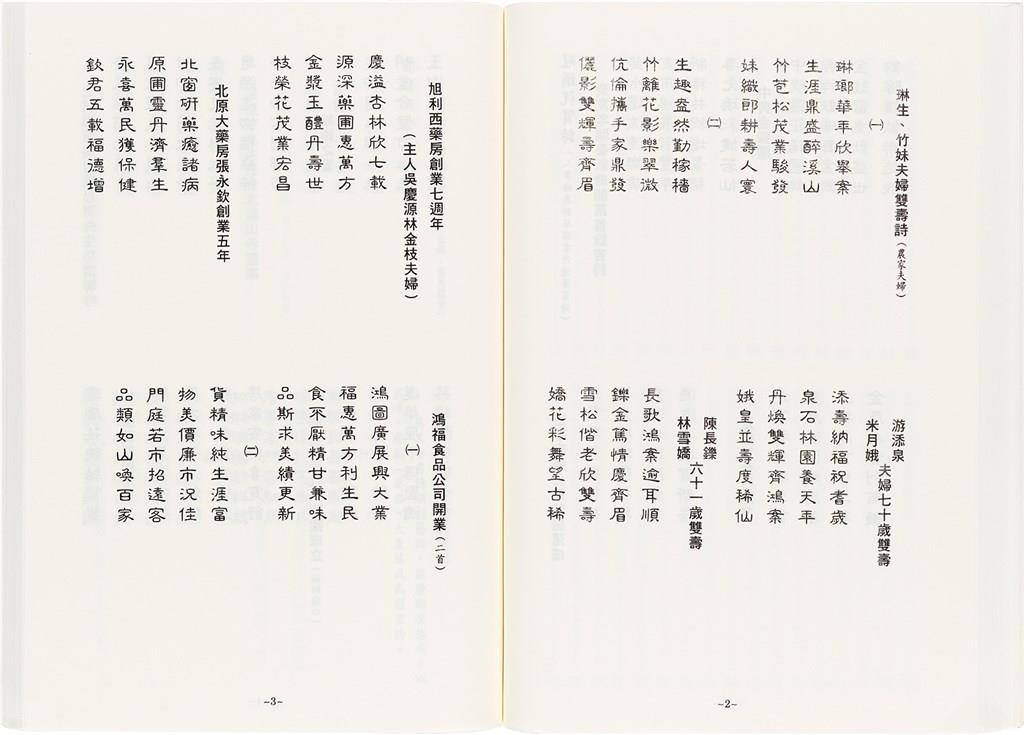 琳生、竹妹夫婦雙壽詩（農家夫婦）
㈠
琳瑯華平欣舉案
生涯鼎盛醉溪山
竹苞松茂業駿發
妹織郎耕壽人寰
㈡
生趣盎然勤稼穡
竹籬花影樂翠微
伉倫攜手家鼎發
儷影雙輝壽齊眉
游添泉
米月娥
夫婦七十歲雙壽
添壽納福祝耆歲
泉石林園養天平
丹煥雙輝齊鴻案
娥皇並壽度稀仙
陳長鑠
林雪嬌
六十一歲雙壽
長歌鴻案逾耳順
鑠金篤情慶齊眉
雪松偕老欣雙壽
嬌花彩舞望古稀
~2~
旭利西藥房創業七週年
（主人吳慶源林金枝夫婦）
慶溢杏林欣七載
源深藥圃惠萬方
金漿玉醴丹壽世
枝榮花茂業宏昌
北原大藥房張永欽創業五年
北窗研藥癒諸病
原圃靈丹濟羣生
永喜萬民獲保健
欽君五載福德增
鴻福食品公司開業（二首）
㈠
鴻圖廣展興大業
福惠萬方利生民
食不厭精甘兼味
品斯求美績更新
㈡
貨精味純生涯富
物美價廉市況佳
門庭若市招遠客
品類如山喚百家
~3~